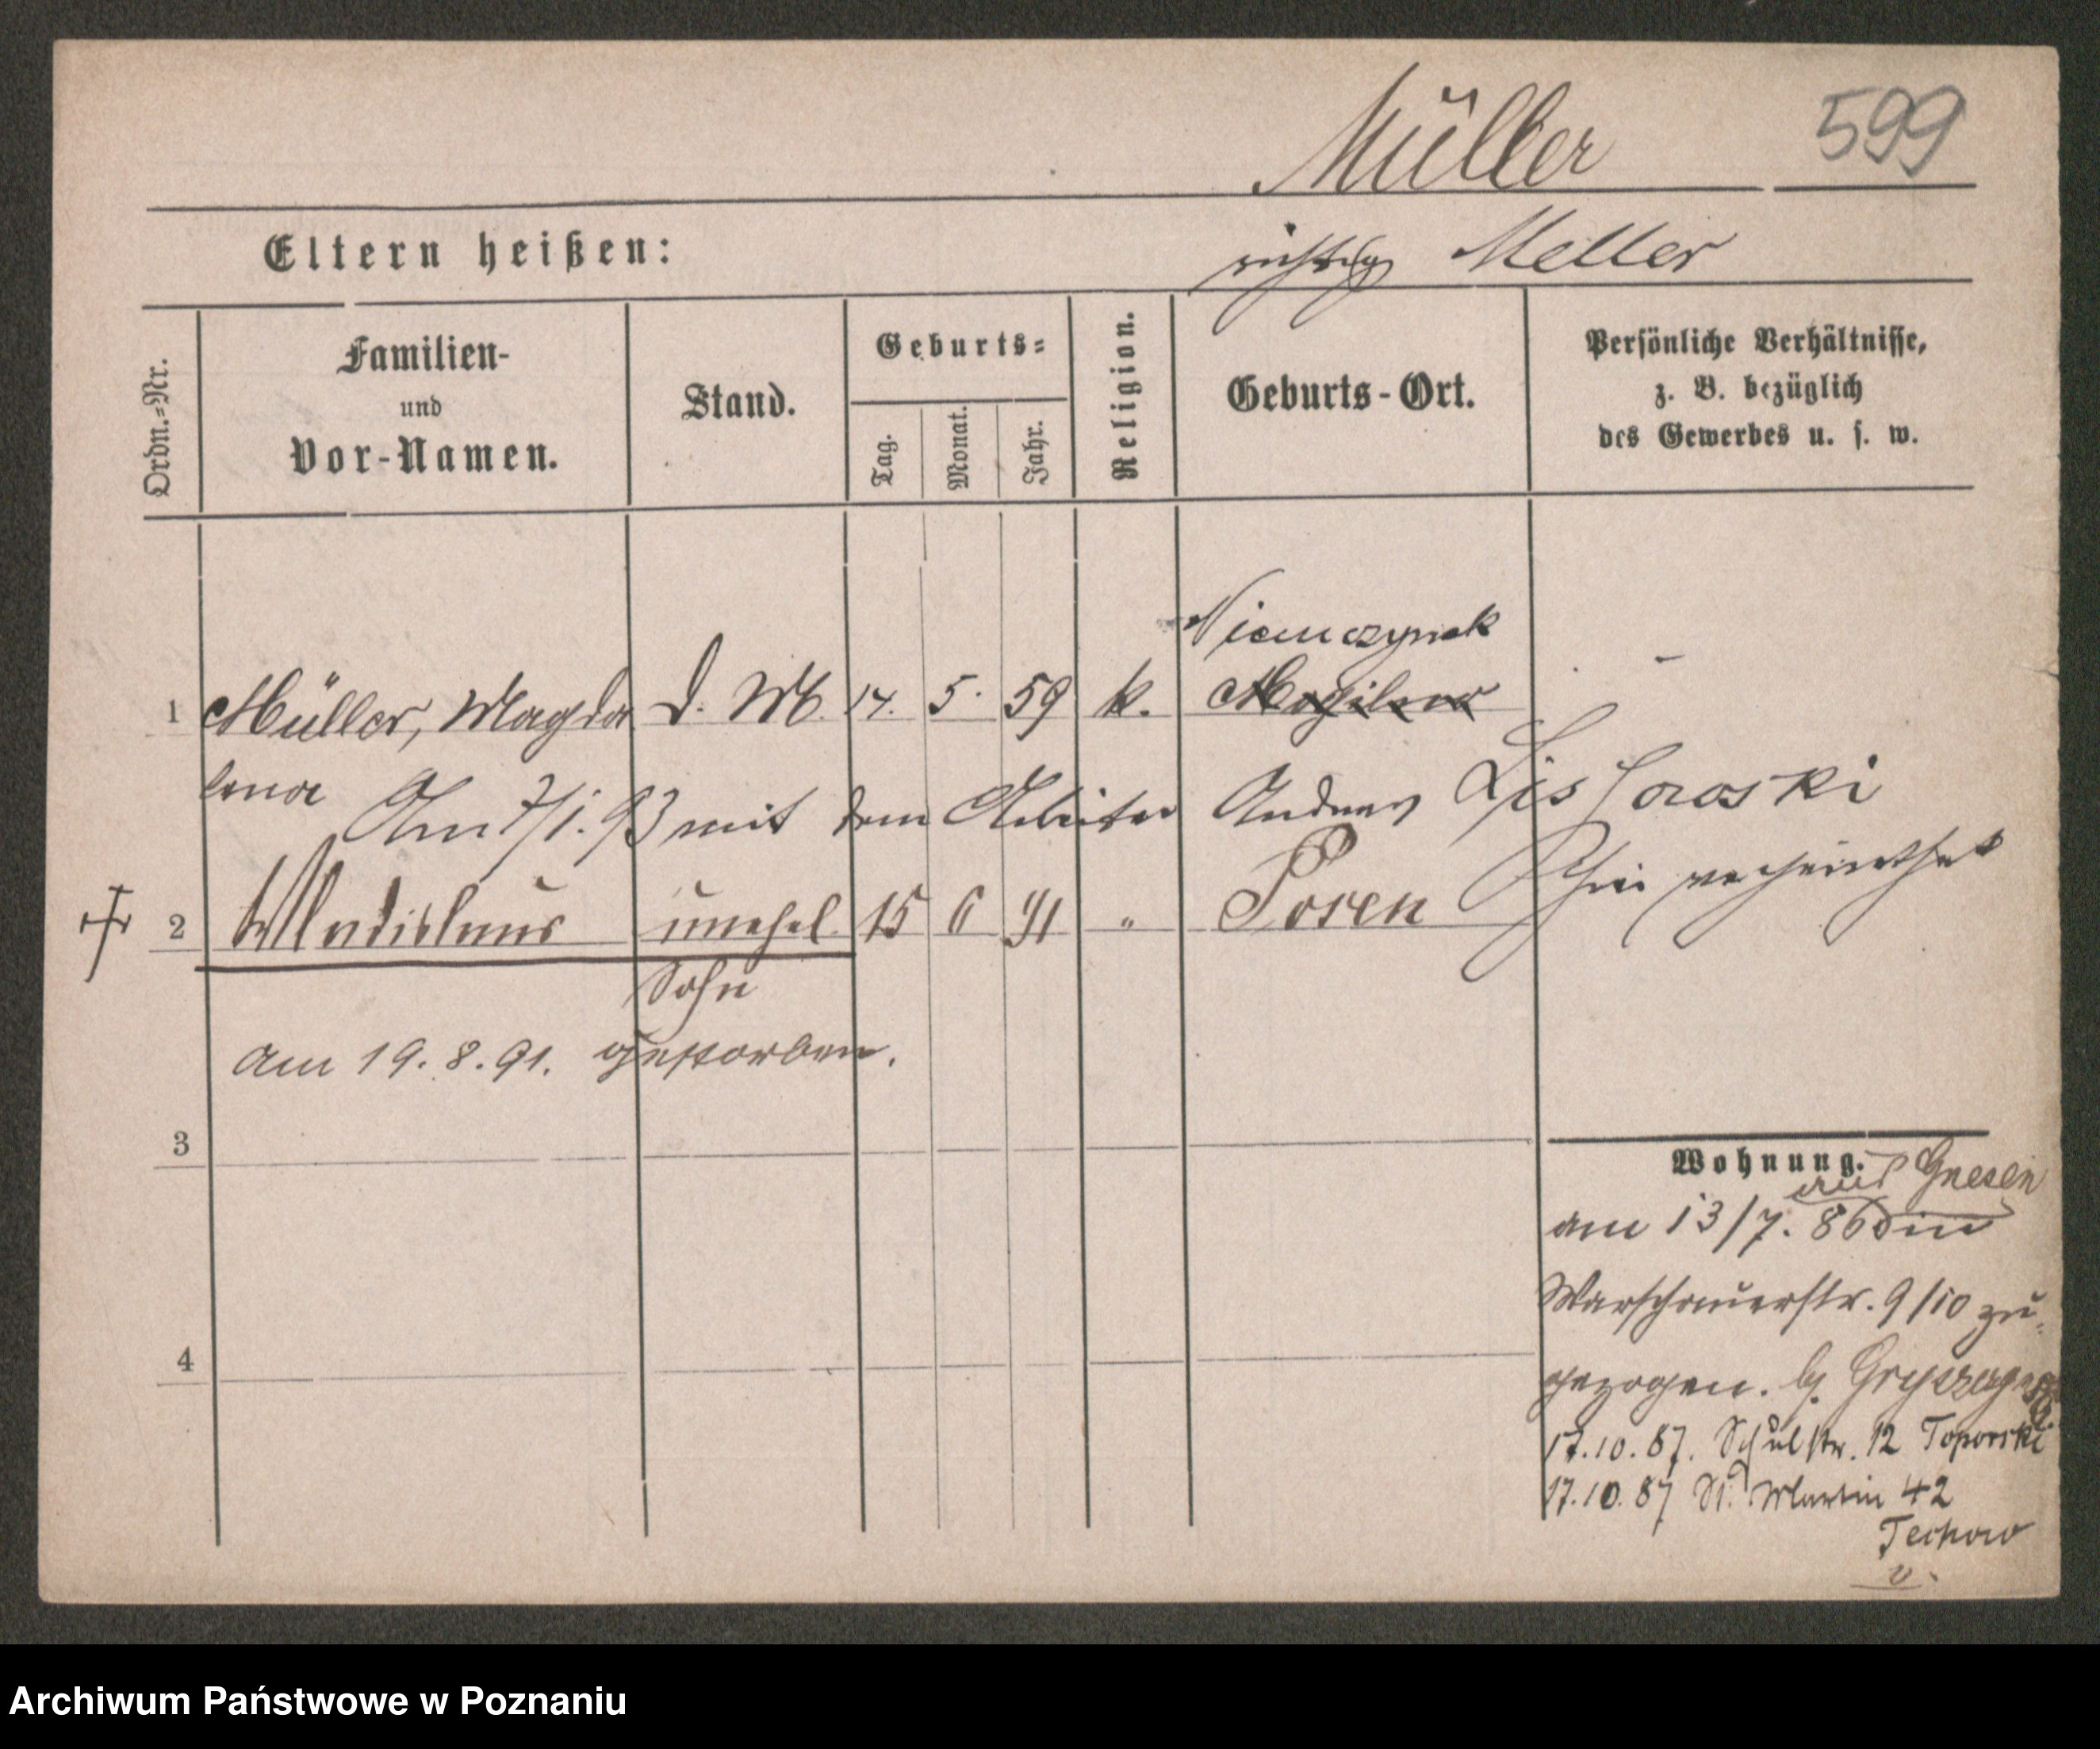 Müller 599
Eltern heißen: richtig Meller
Ordn.=Nr.
Familien-
und
Vor-Namen.
Stand.
Geburts=
Tag.
Monat.
Jahr.
Religion.
Geburts-Ort.
Persönliche Verhältnisse,
z. B. bezüglich
des Gewerbes u. s. w.
Niemczynek
1 Müller, Magda d. M. 14. 5. 59 k. Mogilno
lena
Am 7/1. 93 mit dem Arbeiter Andreas
verheirathet
2 Wladislaus unehel. 15 6 91 " Posen
Sohn
am 19. 8. 91. gestorben.
3
4
Wohnung.
aus Gnesen
am 13/7. 86 in
Warschauerstr. 9/10 zu=
gezogen. b.
17.10.87. Schulstr. 12 Toporski
17.10.87 St. Martin 42
Techow
v.
Archiwum Państwowe w Poznaniu